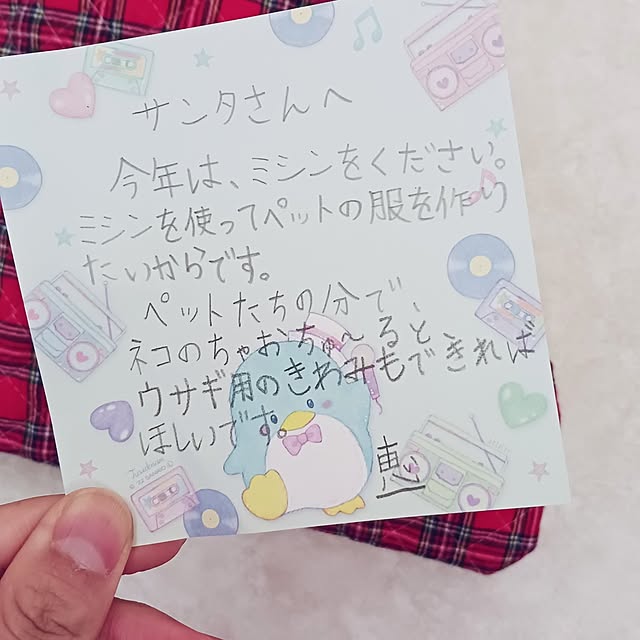 サンタさんへ
今年は、ミシンをください。
ミシンを使ってペットの服を作り
たいからです。
ペットたちの分で、
ネコのちゃおちゅ〜ると
ウサギ用のきわみもできれば
ほしいです。
恵
Tuxedosam